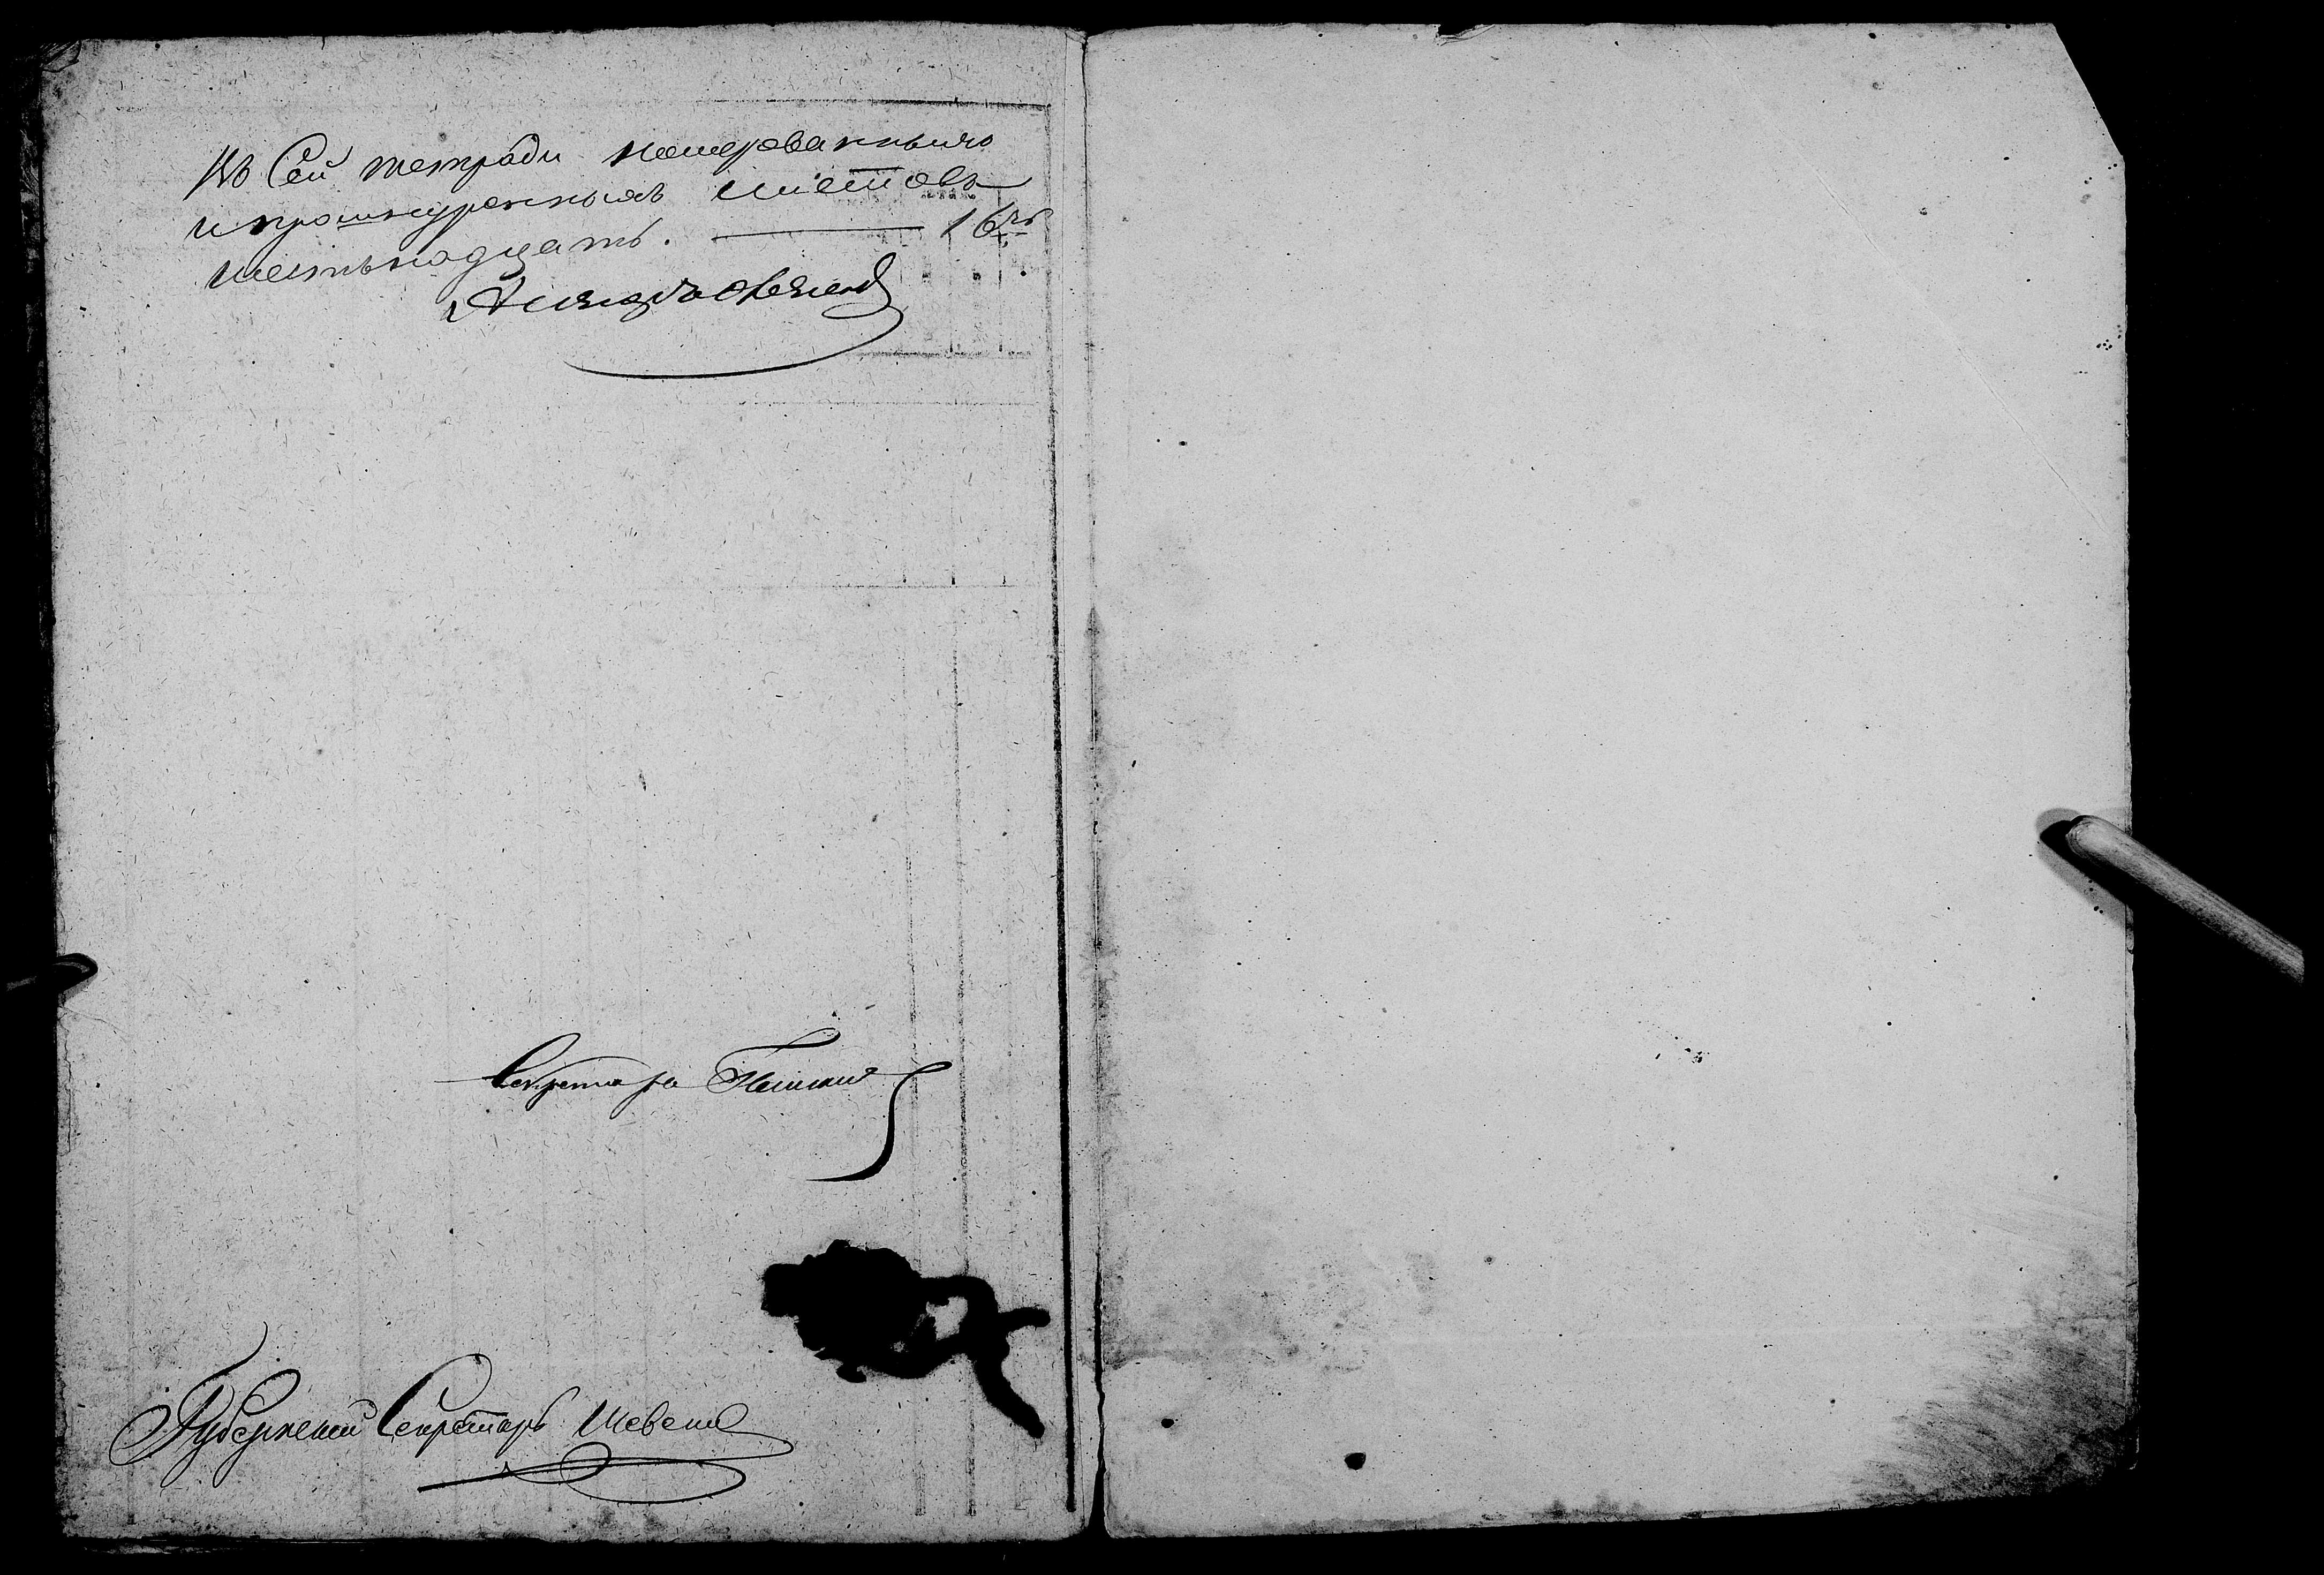 Въ Сей тетради номерованныхъ
и прошнурованныхъ листовъ
шестьнадцать. 16ть
Секретарь
Губернскій Секретарь